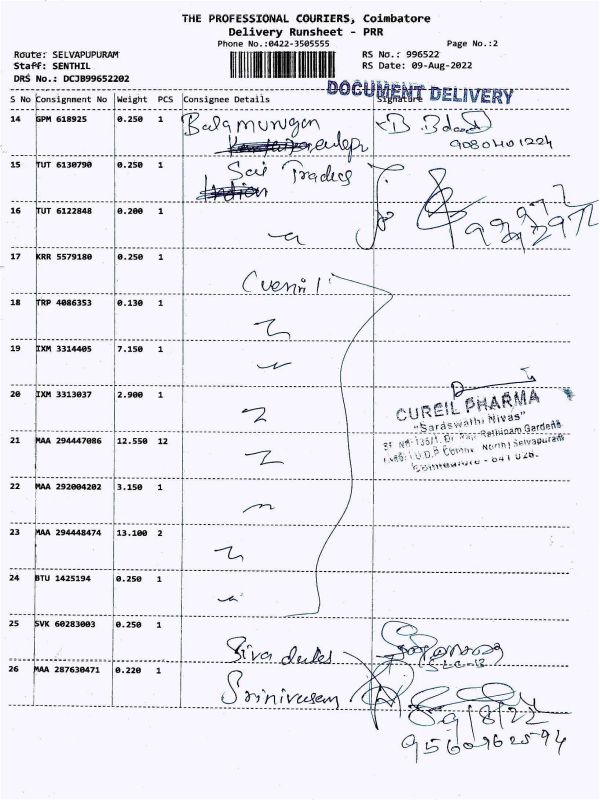 THE PROFESSIONAL COURIERS, Coimbatore
Delivery Runsheet - PRR
Phone No.:0422-3505555
Page No.:2
Route: SELVAPUPURAM
RS No.: 996522
Staff: SENTHIL
RS Date: 09-Aug-2022
DRS No.: DCJB99652202
DOCUMENT DELIVERY
S No Consignment No Weight PCS Consignee Details Signature
14 GPM 618925 0.250 1 Balamurugan
9080401224
15 TUT 6130790 0.250 1 Sai Traders
16 TUT 6122848 0.200 1
17 KRR 5579180 0.250 1
18 TRP 4086353 0.130 1
19 IXM 3314405 7.150 1
20 IXM 3313037 2.900 1
CUREIL PHARMA
"Saraswathi Nivas"
21 MAA 294447086 12.550 12
Rethinam Gardens
North Selvapuram
Coimbatore - 641 026.
22 MAA 292004202 3.150 1
23 MAA 294448474 13.100 2
24 BTU 1425194 0.250 1
25 SVK 60283003 0.250 1 Siva
26 MAA 287630471 0.220 1 Srinivasan
9/8/22